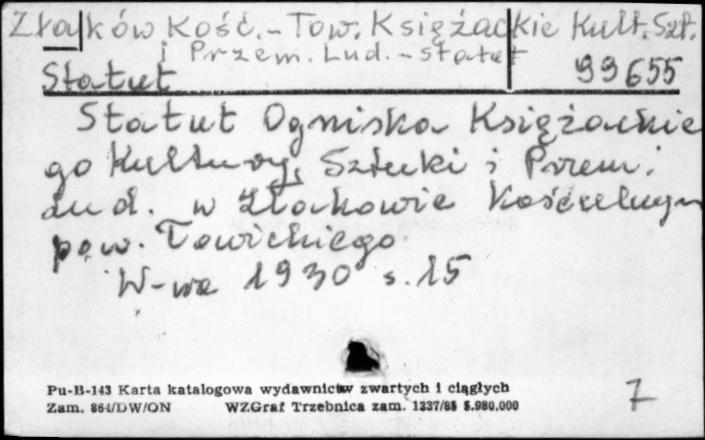 Złaków Kość. - Tow. Księżackie Kult. Szt.
i Przem. Lud. - statut
Statut 99655
Statut Ogniska Księżackie
go Kultury, Sztuki i Przem.
Lud. w Złakowie Kościelnym
pow. Łowickiego
W-wa 1930 s. 15
Pu-B-143 Karta katalogowa wydawnictw zwartych i ciągłych
Zam. 864/DW/ON WZGraf Trzebnica zam. 1337/85 5.980.000
7